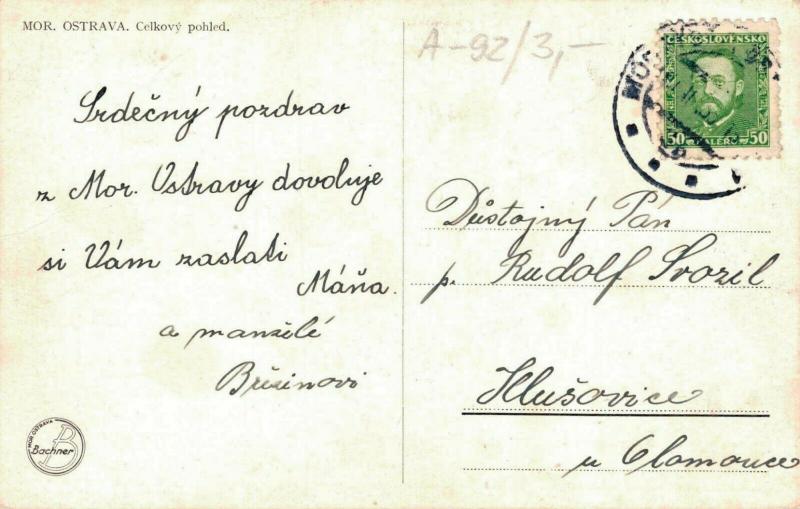 MOR. OSTRAVA. Celkový pohled.
A-92/3,-
Srdečný pozdrav
z Mor. Ostravy dovoluje
si Vám zaslati
Máňa.
a manželé
ČESKOSLOVENSKO
50 KALÉRŮ 50
Důstojný Pán
p. Rudolf Svozil
Hlušovice
u Olomouce
MOR. OSTRAVA
B
Bachner